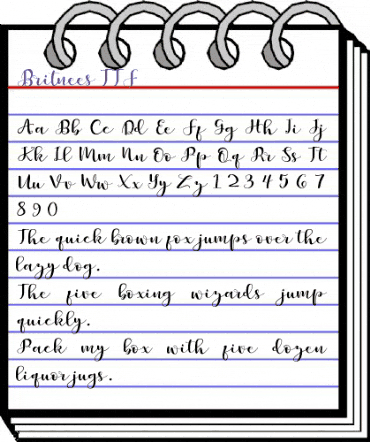 Britnees TTF
Aa Bb Cc Dd Ee Ff Gg Hh Ii Jj
Kk Ll Mm Nn Oo Pp Qq Rr Ss Tt
Uu Vv Ww Xx Yy Zz 1 2 3 4 5 6 7
8 9 0
The quick brown fox jumps over the
lazy dog.
The five boxing wizards jump
quickly.
Pack my box with five dozen
liquor jugs.